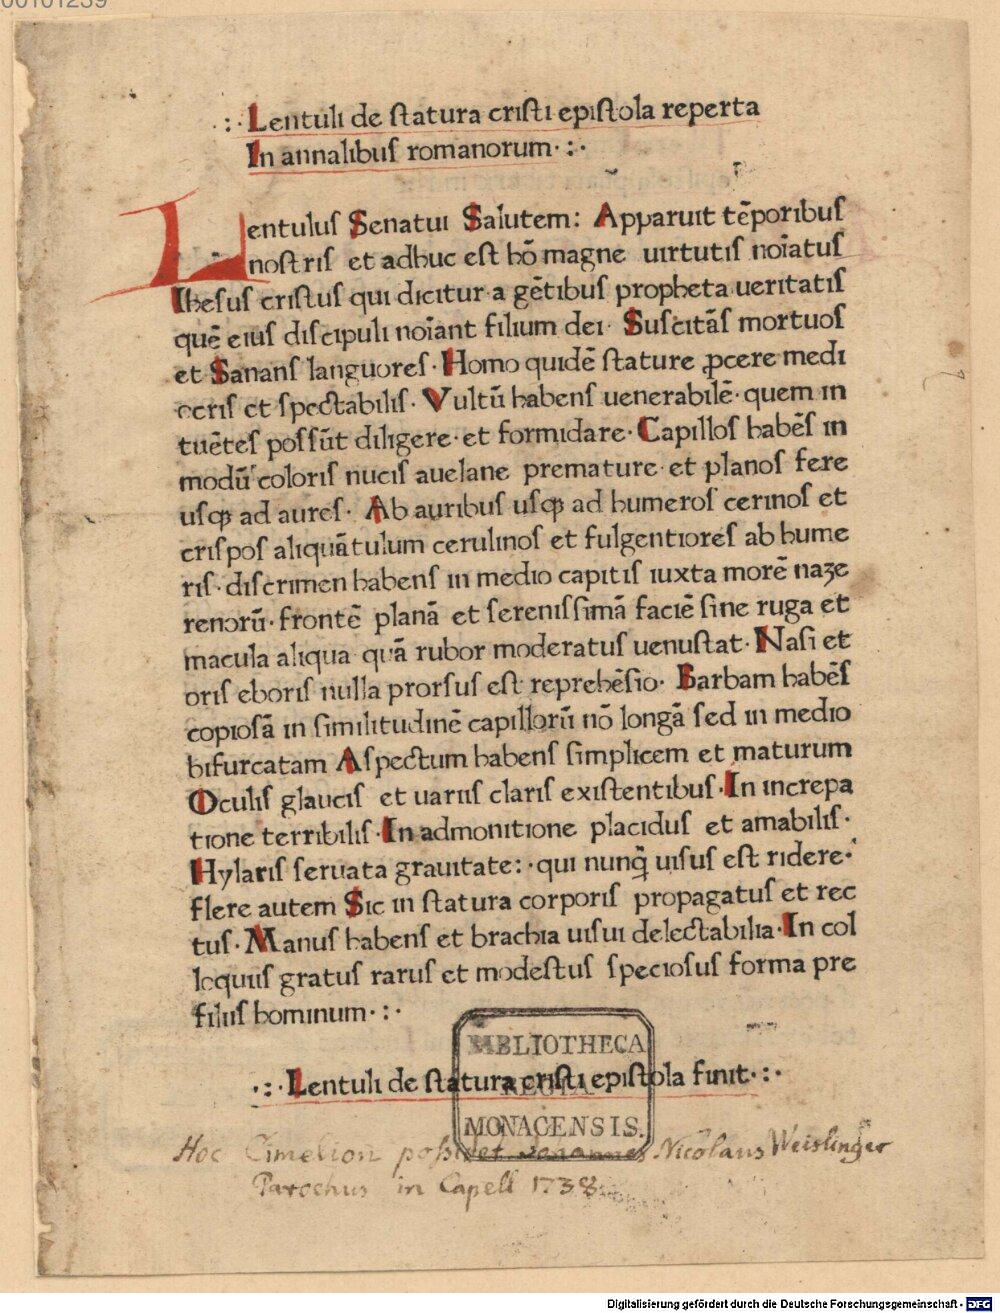 00101239
.:· Lentuli de ſtatura criſti epiſtola reperta
In annalibuſ romanorum·:·
Lentuluſ Senatui Salutem: Apparuit tēporibuſ
noſtriſ et adhuc eſt hō magne uirtutiſ noīatuſ
Iheſuſ criſtuſ qui dicitur a gētibuſ propheta ueritatiſ
quē eiuſ diſcipuli noīant filium dei· Suſcitāſ mortuoſ
et Sananſ languoreſ· Homo quidē ſtature ꝓcere medi
ocriſ et ſpectabiliſ· Vultū habenſ uenerabilē· quem in
tuēteſ poſſūt diligere· et formidare· Capilloſ habēſ in
modū coloriſ nuciſ auelane premature· et planoſ fere
uſqꝫ ad aureſ· Ab auribuſ uſqꝫ ad humeroſ cerinoſ et
criſpoſ aliquātulum cerulinoſ et fulgentioreſ ab hume
riſ· diſcrimen habenſ in medio capitiſ iuxta morē naze
renorū· frontē planā et ſereniſſimā faciē ſine ruga et
macula aliqua quā rubor moderatuſ uenuſtat· Naſi et
oriſ eboriſ nulla prorſuſ eſt reprehēſio· Barbam habēſ
copioſā in ſimilitudinē capillorū nō longā ſed in medio
bifurcatam Aſpectum habenſ ſimplicem et maturum
Oculiſ glauciſ et uariiſ clariſ exiſtentibuſ· In increpa
tione terribiliſ· In admonitione placiduſ et amabiliſ·
Hylariſ ſeruata grauitate:· qui nunq̄ uiſuſ eſt ridere·
flere autem Sic in ſtatura corporiſ propagatuſ et rec
tuſ· Manuſ habenſ et brachia uiſui delectabilia· In col
loquiiſ gratuſ raruſ et modeſtuſ ſpecioſuſ forma pre
filiiſ hominum·:·
·:· Lentuli de ſtatura criſti epiſtola finit·:·
BIBLIOTHECA
REGIA
MONACENSIS.
Hoc Cimelion poſsidet Joannes Nicolaus Weislinger
Parochus in Capell 1738.
Digitalisierung gefördert durch die Deutsche Forschungsgemeinschaft - DFG